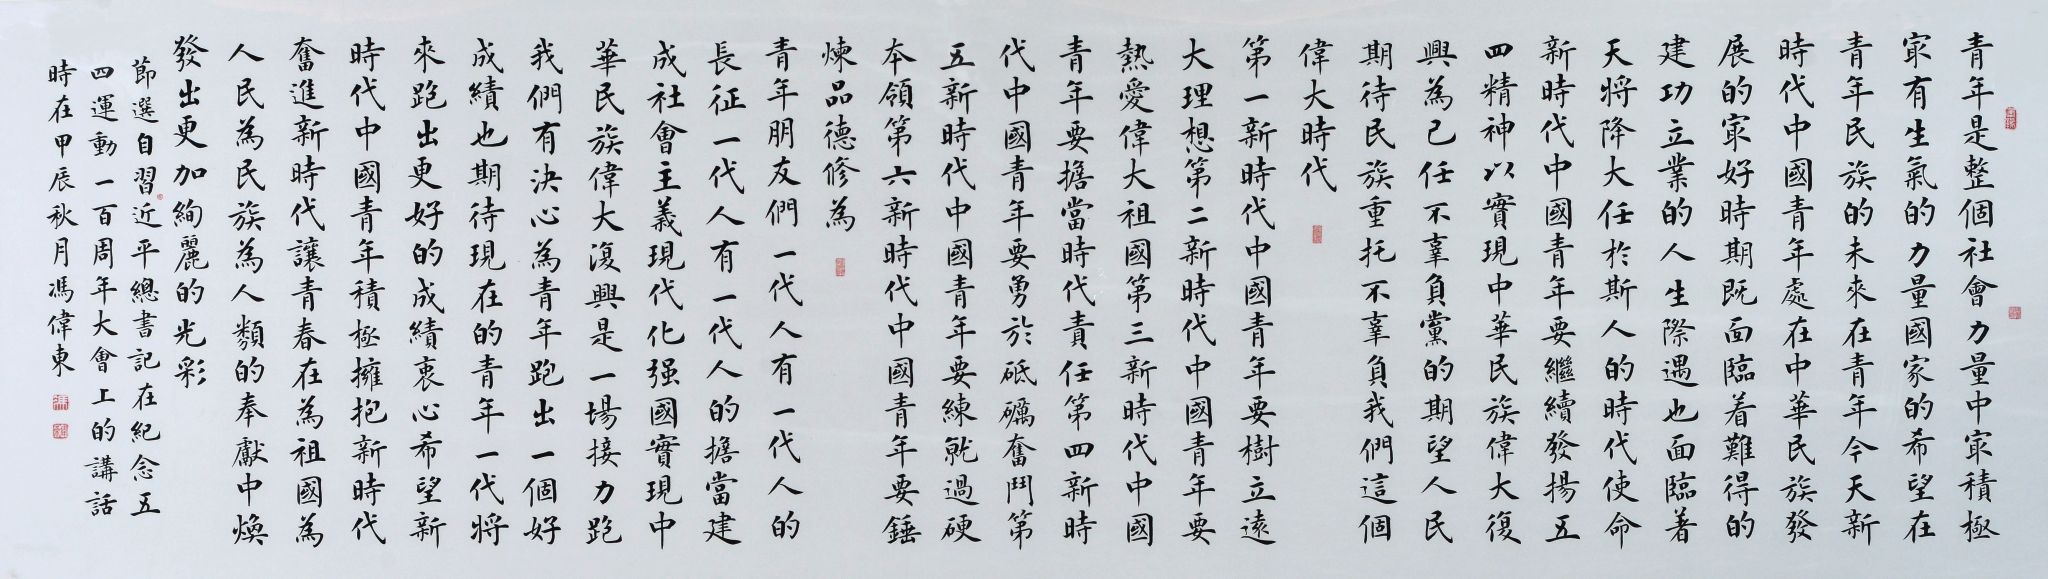 青年是整個社會力量中㝡積極
㝡有生氣的力量國家的希望在
青年民族的未來在青年今天新
時代中國青年處在中華民族發
展的㝡好時期既面臨着難得的
建功立業的人生際遇也面臨著
天將降大任於斯人的時代使命
新時代中國青年要繼續發揚五
四精神以實現中華民族偉大復
興為己任不辜負黨的期望人民
期待民族重托不辜負我們這個
偉大時代
第一新時代中國青年要樹立遠
大理想第二新時代中國青年要
熱愛偉大祖國第三新時代中國
青年要擔當時代責任第四新時
代中國青年要勇於砥礪奮鬥第
五新時代中國青年要練就過硬
本領第六新時代中國青年要錘
煉品德修為
青年朋友們一代人有一代人的
長征一代人有一代人的擔當建
成社會主義現代化强國實現中
華民族偉大復興是一場接力跑
我們有決心為青年跑出一個好
成績也期待現在的青年一代將
來跑出更好的成績衷心希望新
時代中國青年積極擁抱新時代
奮進新時代讓青春在為祖國為
人民為民族為人類的奉獻中煥
發出更加絢麗的光彩
節選自習近平總書記在紀念五
四運動一百周年大會上的講話
時在甲辰秋月馮偉東